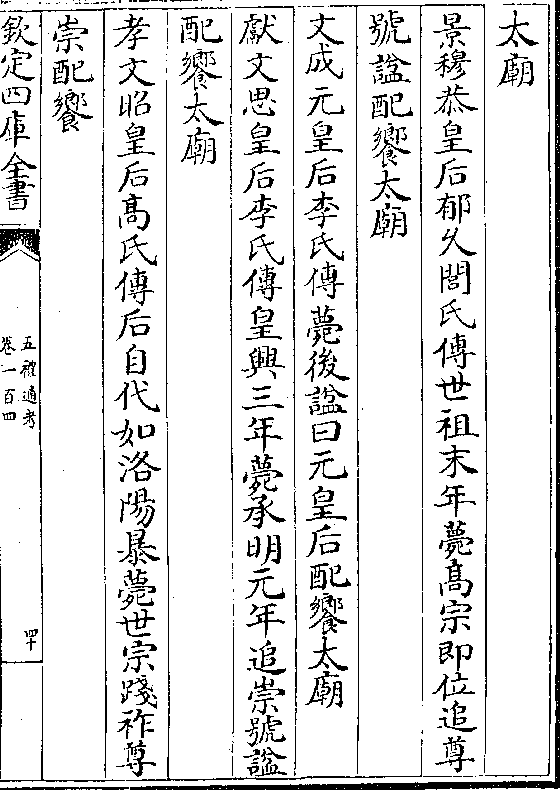 太廟
景穆恭皇后郁久閭氏傳世祖末年薨髙宗即位追尊
號諡配饗太廟
文成元皇后李氏傳薨後諡曰元皇后配饗太廟
獻文思皇后李氏傳皇興三年薨承明元年追崇號諡
配饗太廟
孝文昭皇后髙氏傳后自代如洛陽暴薨世宗踐祚尊
崇配饗
欽定四庫全書
五禮通考
卷一百四
四十